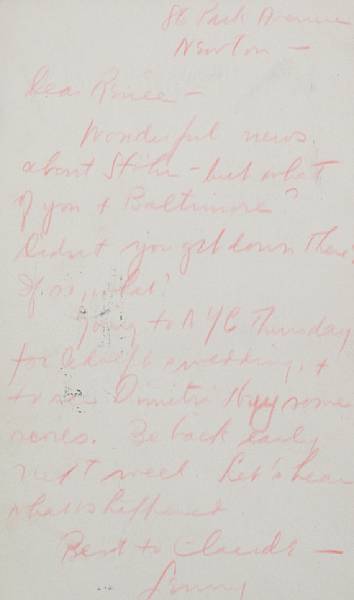 88 Park Avenue
Newton —
Dear Renée —
Wonderful news
about Stöhr — but what
of you & Baltimore?
Didn't you get down there?
If so, what?
Going to NYC Thursday
for a wedding, &
to see Dimitri some
scores. Be back early
next week. Let's hear
what's happened
Best to Claude —